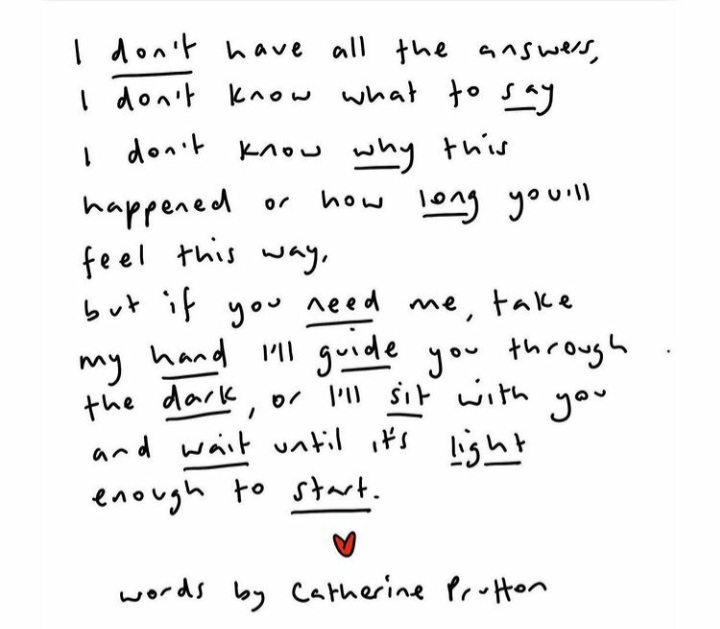 I don't have all the answers,
I don't know what to say
I don't know why this
happened or how long you'll
feel this way,
but if you need me, take
my hand I'll guide you through
the dark, or I'll sit with you
and wait until it's light
enough to start.
words by Catherine Prutton